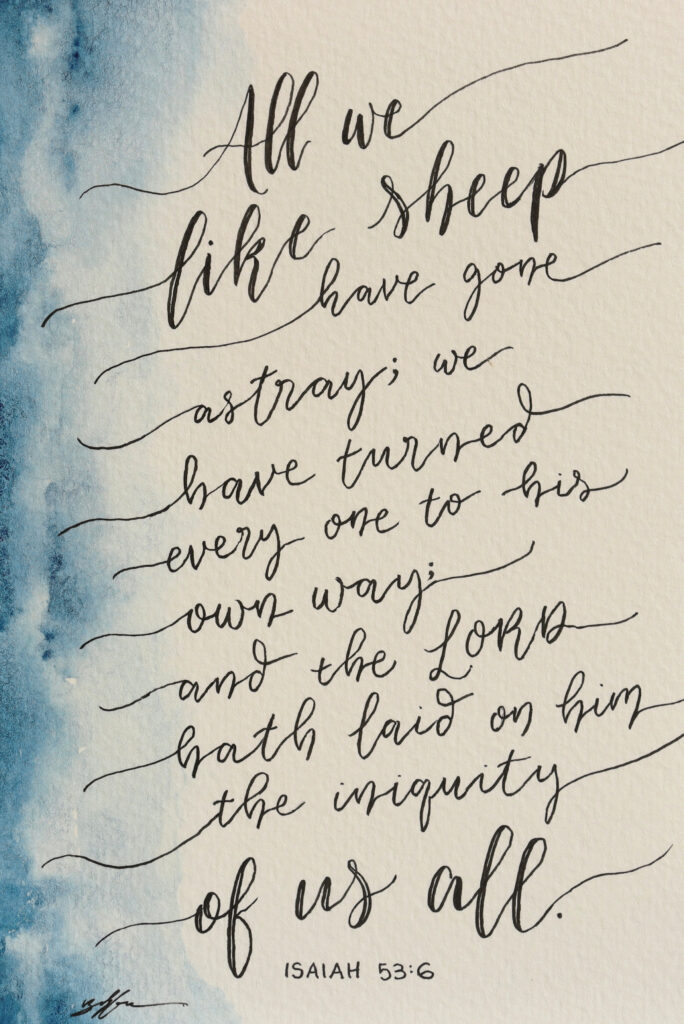 All we
like sheep
have gone
astray; we
have turned
every one to his
own way;
and the LORD
hath laid on him
the iniquity
of us all.
ISAIAH 53:6